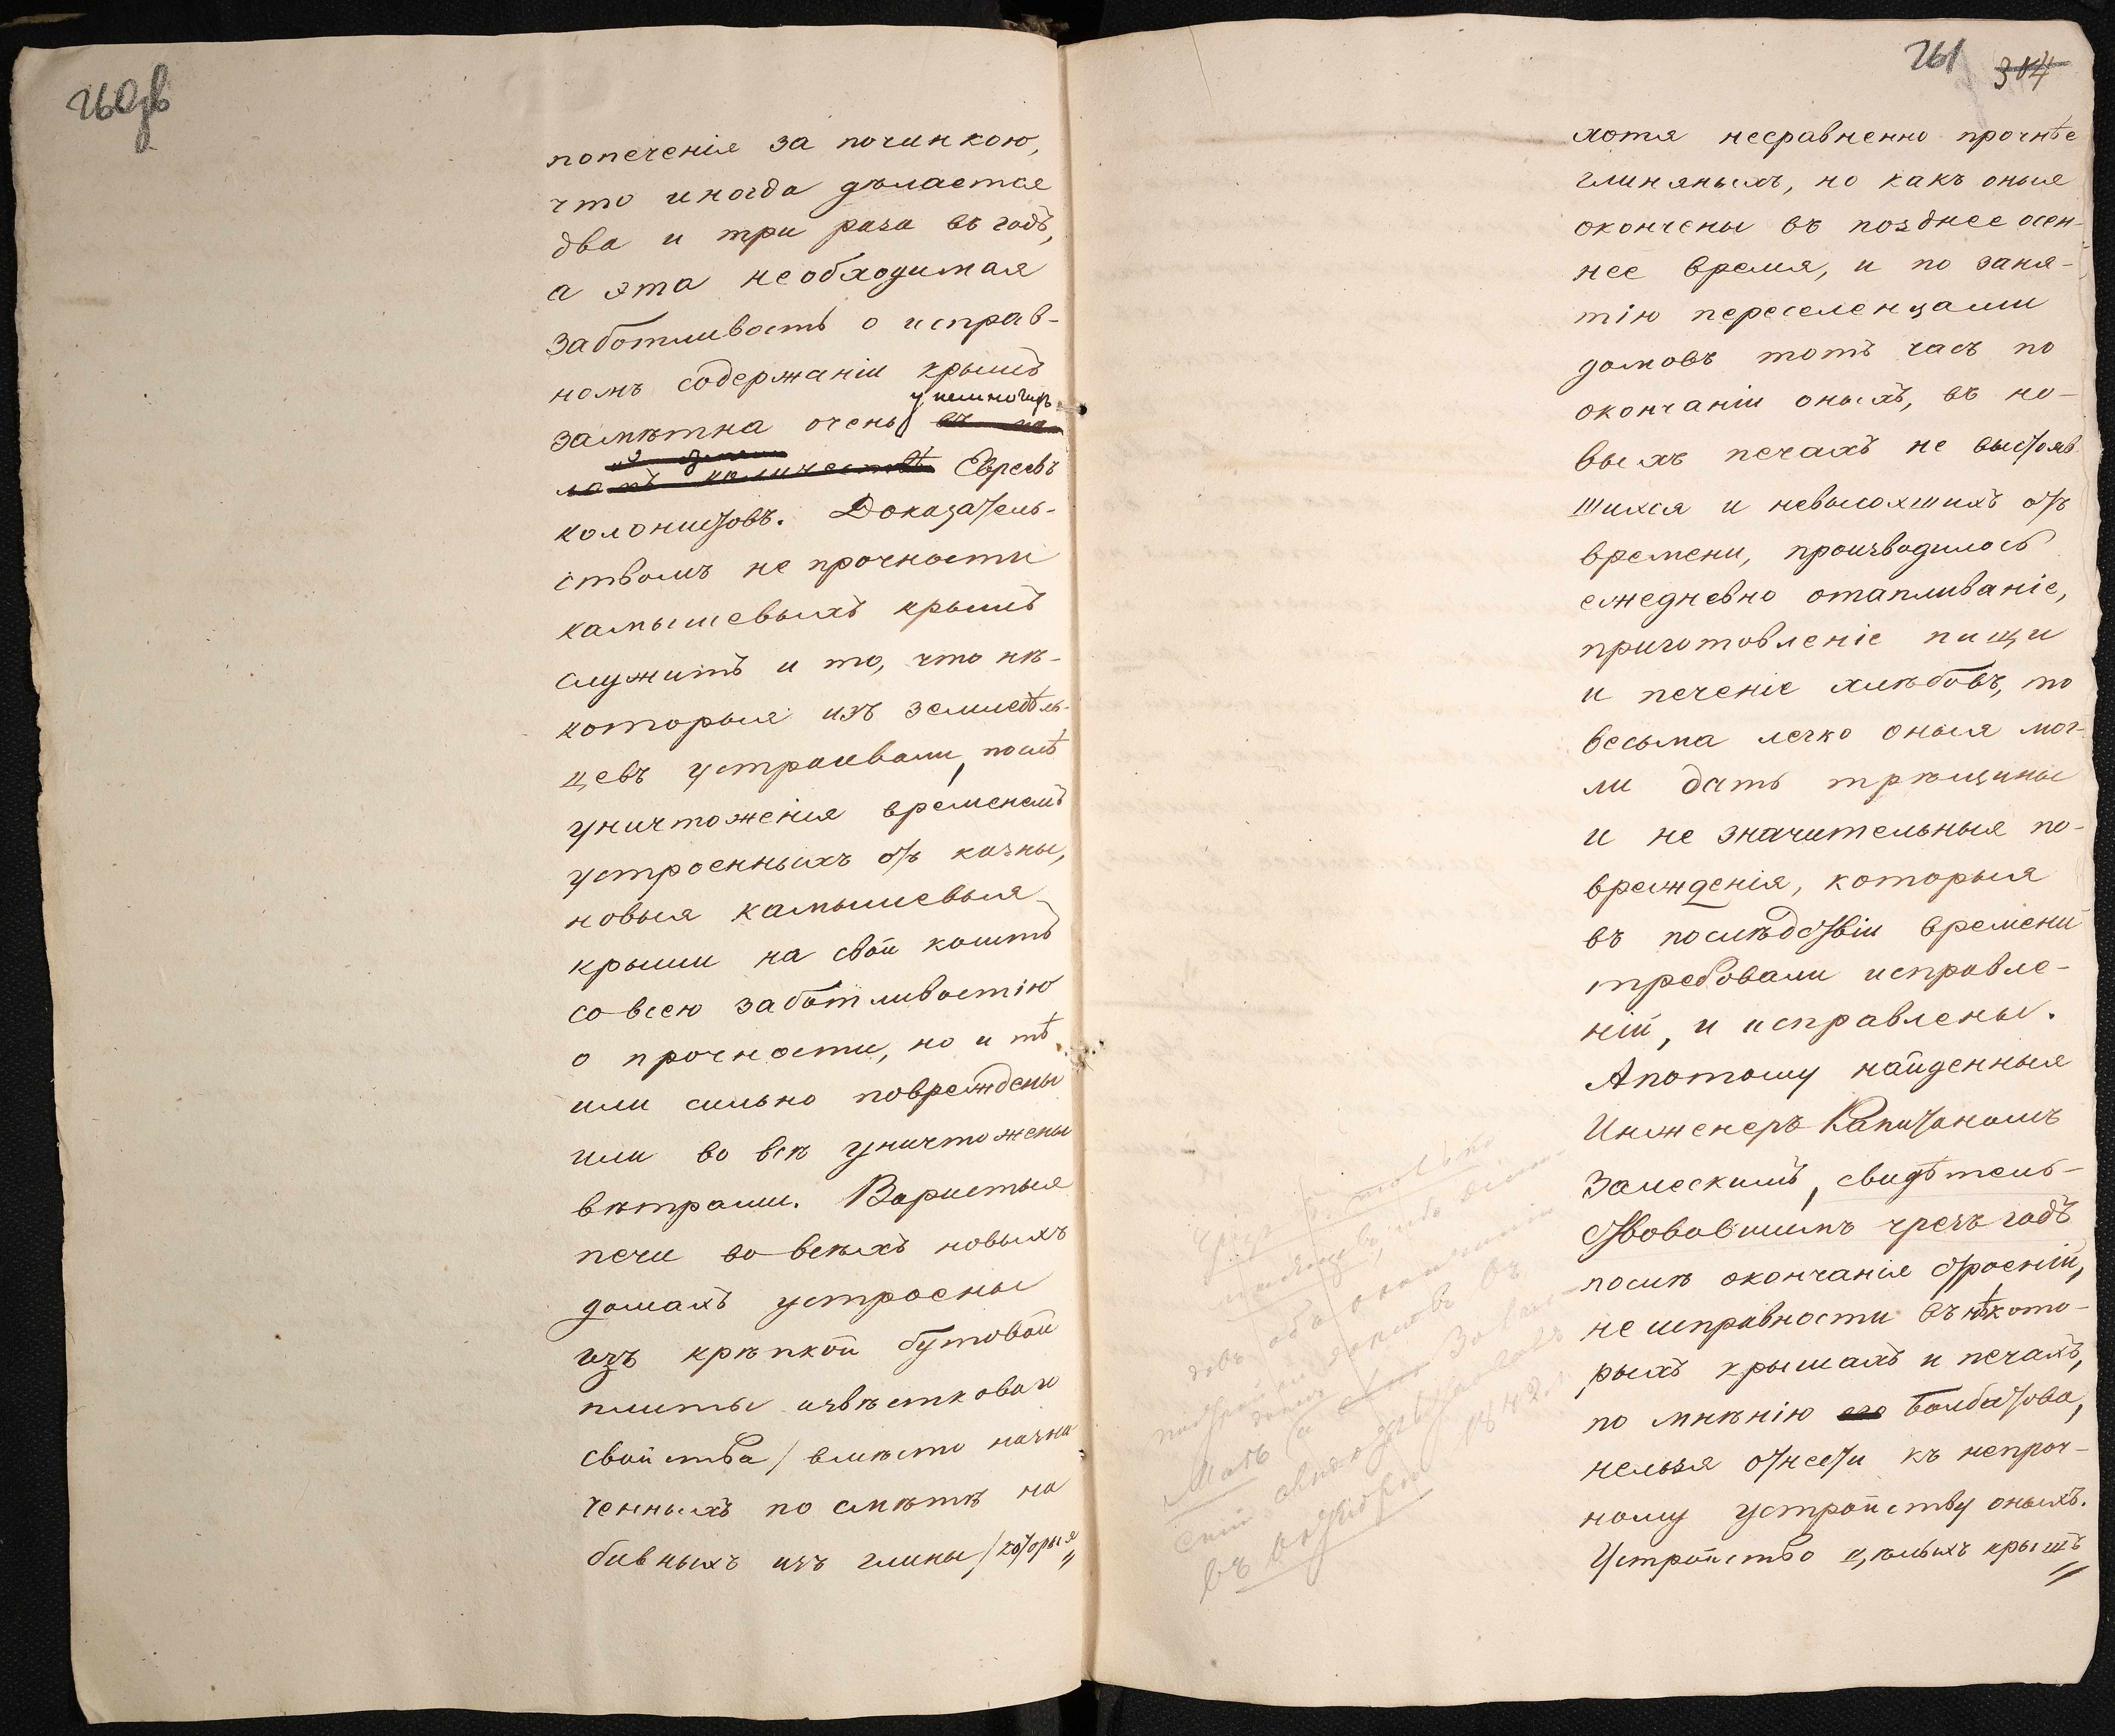 260об
попеченія за починкою,
что иногда дѣлается
два и три раза въ годъ,
а эта необходимая
заботливость о исправ-
номъ содержаніи крышъ
замѣтна очень у немногихъ
Евреевъ
колонистовъ. Доказатель-
ствомъ не прочности
камышевыхъ крышъ
служитъ и то, что нѣ-
которыя изъ земледѣль-
цевъ устраивали, послѣ
уничтоженія временемъ
устроенныхъ отъ казны,
новыя камышевыя
крыши на свой коштъ
со всею заботливостію
о прочности, но и тѣ
или сильно повреждены
или во всѣ уничтожены
вѣтрами. Варистыя
печи во всѣхъ новыхъ
домахъ устроены
изъ крѣпкой бутовой
плиты извѣстковаго
свойства / вмѣсто назна
ченныхъ по смѣтѣ на
бивныхъ изъ глины / которыя
261 304
хотя несравненно прочнѣе
глиняныхъ, но какъ оныя
окончены въ позднее осен-
нее время, и по заня-
тію переселенцами
домовъ тотъ часъ по
окончаніи оныхъ, въ но-
выхъ печахъ не выстояв
шихся и невысохшихъ отъ
времени, производилось
ежедневно отапливаніе,
приготовленіе пищи
и печеніе хлѣбовъ, то
весьма легко оныя мог-
ли дать трѣщины
и не значительныя по-
врежденія, которыя
въ послѣдствіи времени
требовали исправле-
ній, и исправлены.
А потому найденныя
Инженеръ Капитаномъ
Залескимъ, свидѣтель-
ствовавшимъ чрезъ годъ
послѣ окончанія строеній,
не исправности въ нѣкото-
рыхъ крышахъ и печахъ,
по мнѣнію его Балбатова,
нельзя отнести къ непроч-
ному устройству оныхъ.
Устройство цѣлыхъ крышъ
только
объ окончаніи
домовъ въ
въ Октябрѣ